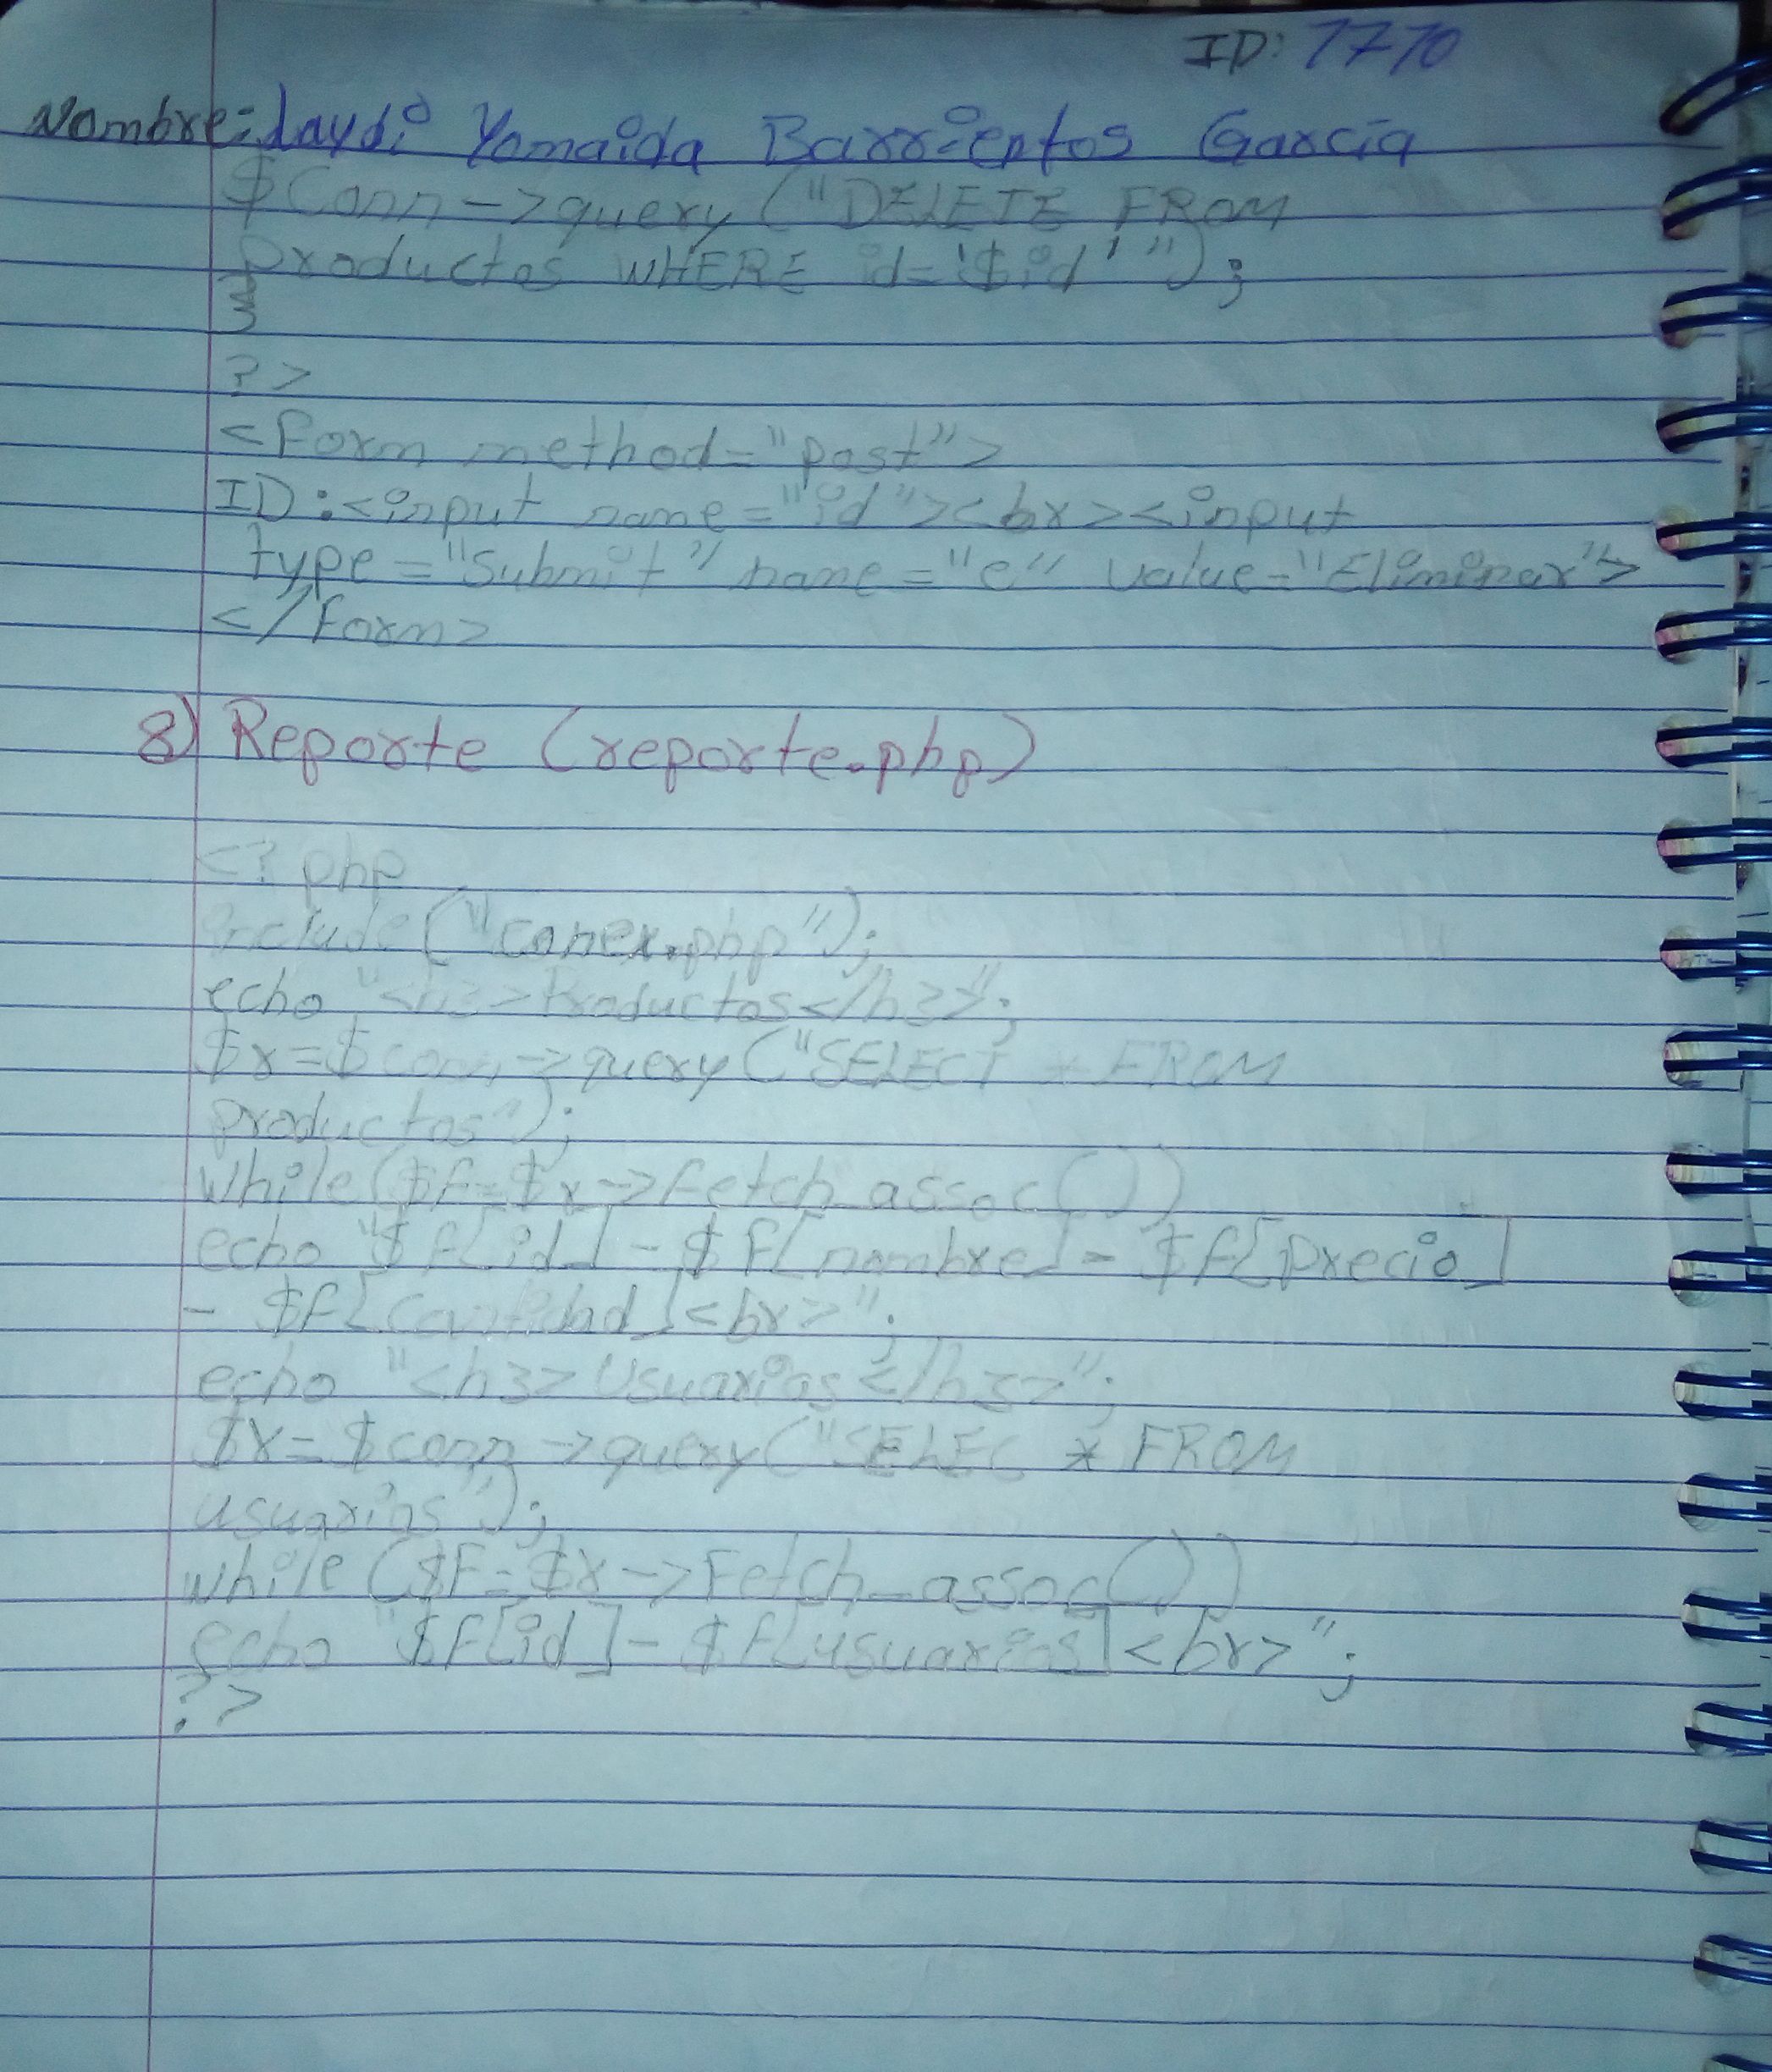 ID: 7770
Nombre: Laydi Yomaida Barrientos García
$Conn->query ("DELETE FROM
productos WHERE id='$id' ");
}
?>
<form method="post">
ID:<input name="id"><br><input
type="Submit" name="e" value="Eliminar">
</form>
8) Reporte (reporte.php)
<?php
include("conex.php");
echo "<h3>Productos</h3>";
$r=$conn->query("SELECT * FROM
productos");
while($f=$r->fetch_assoc())
echo "$f[id] - $f[nombre] - $f[precio]
- $f[cantidad]<br>";
echo "<h3>Usuarios</h3>";
$r=$conn->query("SELEC * FROM
usuarios");
while($F=$r->Fetch_assoc())
echo "$f[id] - $f[usuarios]<br>";
?>